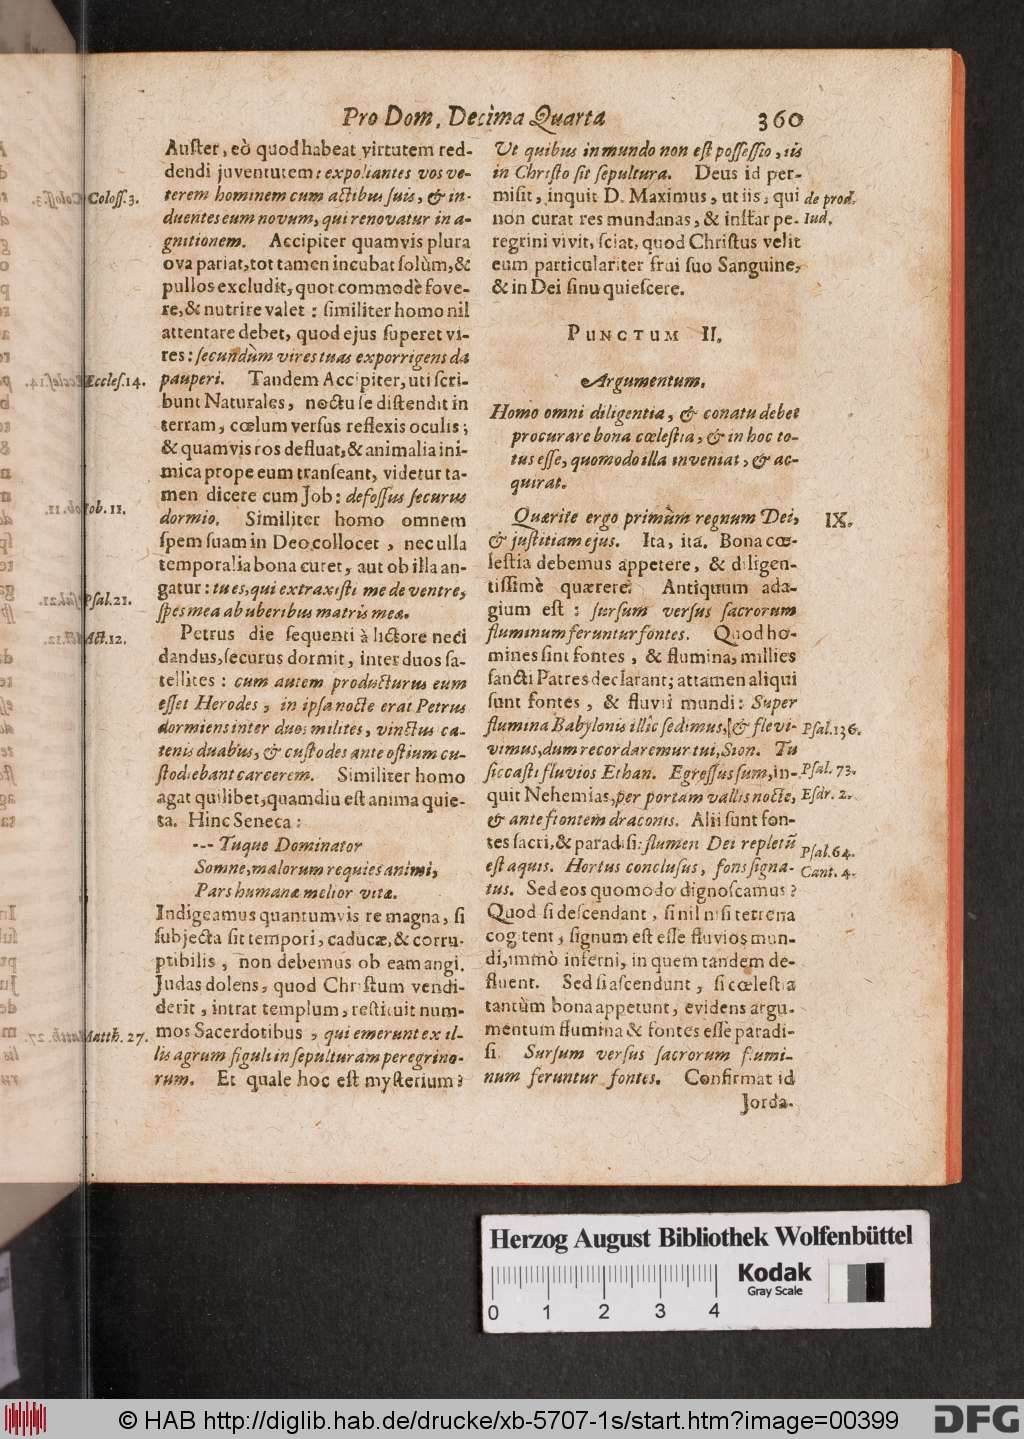 Pro Dom. Decima Quarta 360
Auſter, eò quod habeat virtutem red-
dendi juventutem: expoliantes vos ve-
terem hominem cum actibus ſuis, & in-
Coloſſ. 3.
duentes eum novum, qui renovatur in a-
gnitionem. Accipiter quamvis plura
ova pariat, tot tamen incubat ſolùm, &
pullos excludit, quot commodè fove-
re, & nutrire valet: ſimiliter homo nil
attentare debet, quod ejus ſuperet vi-
res: ſecundùm vires tuas exporrigens da
pauperi. Tandem Accipiter, uti ſcri-
Eccleſ. 14.
bunt Naturales, noctu ſe diſtendit in
terram, cœlum verſus reflexis oculis;
& quamvis ros defluat, & animalia ini-
mica prope eum tranſeant, videtur ta-
men dicere cum Job: defoſſus ſecurus
Job. 11.
dormio. Similiter homo omnem
ſpem ſuam in Deo collocet, nec ulla
temporalia bona curet, aut ob illa an-
gatur: tu es, qui extraxiſti me de ventre,
Pſal. 21.
ſpes mea ab uberibus matris meæ.
Petrus die ſequenti à lictore neci
Act. 12.
dandus, ſecurus dormit, inter duos ſa-
tellites: cum autem producturus eum
eſſet Herodes, in ipſa nocte erat Petrus
dormiens inter duos milites, vinctus ca-
tenis duabus, & cuſtodes ante oſtium cu-
ſtodiebant carcerem. Similiter homo
agat quilibet, quamdiu eſt anima quie-
ta. Hinc Seneca:
--- Tuque Dominator
Somne, malorum requies animi,
Pars humanæ melior vitæ.
Indigeamus quantumvis re magna, ſi
ſubjecta ſit tempori, caducæ, & corru-
ptibilis, non debemus ob eam angi.
Judas dolens, quod Chriſtum vendi-
derit, intrat templum, reſtituit num-
mos Sacerdotibus, qui emerunt ex il-
Matth. 27.
lis agrum figuli in ſepulturam peregrino-
rum. Et quale hoc eſt myſterium?
Ut quibus in mundo non eſt poſſeſſio, iis
in Chriſto ſit ſepultura. Deus id per-
miſit, inquit D. Maximus, ut iis, qui
de prod.
non curat res mundanas, & inſtar pe-
Iud.
regrini vivit, ſciat, quod Chriſtus velit
eum particulariter frui ſuo Sanguine,
& in Dei ſinu quieſcere.
PUNCTUM II.
Argumentum.
Homo omni diligentia, & conatu debet
procurare bona cœleſtia, & in hoc to-
tus eſſe, quomodo illa inveniat, & ac-
quirat.
Quærite ergo primùm regnum Dei,
IX.
& juſtitiam ejus. Ita, ita. Bona cœ-
leſtia debemus appetere, & diligen-
tiſſimè quærere. Antiquum ada-
gium eſt: ſurſum verſus ſacrorum
fluminum feruntur fontes. Quod ho-
mines ſint fontes, & flumina, millies
ſancti Patres declarant; attamen aliqui
ſunt fontes, & fluvii mundi: Super
flumina Babylonis illic ſedimus, & flevi-
Pſal. 136.
vimus, dum recordaremur tui, Sion. Tu
ſiccaſti fluvios Ethan. Egreſſus ſum, in-
Pſal. 73.
quit Nehemias, per portam vallis nocte,
Eſdr. 2.
& ante fontem draconis. Alii ſunt fon-
tes ſacri, & paradiſi: flumen Dei repletũ
Pſal. 64.
eſt aquis. Hortus concluſus, fons ſigna-
Cant. 4.
tus. Sed eos quomodo dignoſcamus?
Quod ſi deſcendant, ſi nil niſi terrena
cogitent, ſignum eſt eſſe fluvios mun-
di, immò inferni, in quem tandem de-
fluent. Sed ſi aſcendunt, ſi cœleſtia
tantùm bona appetunt, evidens argu-
mentum flumina & fontes eſſe paradi-
ſi. Surſum verſus ſacrorum flumi-
num feruntur fontes. Confirmat id
Jorda-
Herzog August Bibliothek Wolfenbüttel
0 1 2 3 4
Kodak
Gray Scale
© HAB http://diglib.hab.de/drucke/xb-5707-1s/start.htm?image=00399
DFG